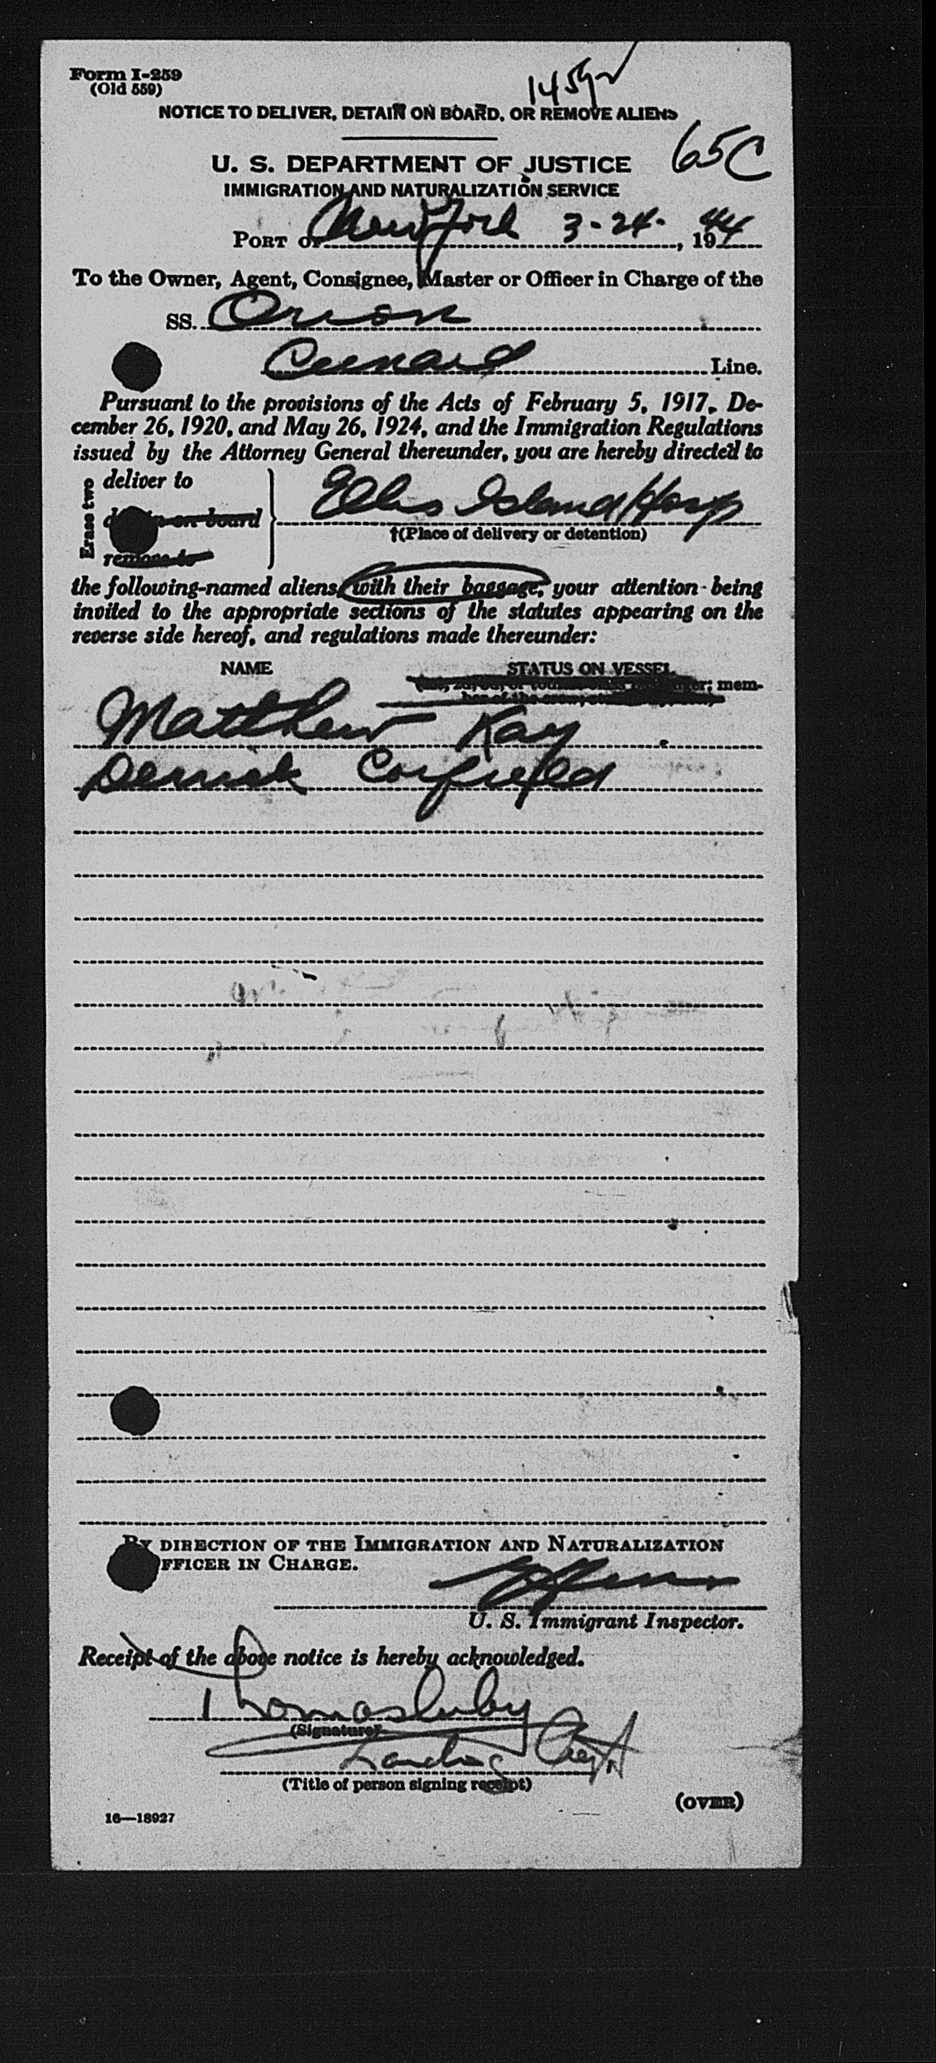 Form I-259
(Old 559)
NOTICE TO DELIVER, DETAIN ON BOARD, OR REMOVE ALIENS
65C
U. S. DEPARTMENT OF JUSTICE
IMMIGRATION AND NATURALIZATION SERVICE
PORT OF New York 3-24-, 1944
To the Owner, Agent, Consignee, Master or Officer in Charge of the
SS. Orion
Cunard Line.
Pursuant to the provisions of the Acts of February 5, 1917, De-
cember 26, 1920, and May 26, 1924, and the Immigration Regulations
issued by the Attorney General thereunder, you are hereby directed to
Erase two
deliver to
detain on board
remove to
Ellis Island Hosp
†(Place of delivery or detention)
the following-named aliens, with their baggage, your attention being
invited to the appropriate sections of the statutes appearing on the
reverse side hereof, and regulations made thereunder:
NAME STATUS ON VESSEL
mem-
Matthew Kay
Derrick Corfield
BY DIRECTION OF THE IMMIGRATION AND NATURALIZATION
OFFICER IN CHARGE.
U. S. Immigrant Inspector.
Receipt of the above notice is hereby acknowledged.
Thomas
(Signature)
Landing Agt
(Title of person signing receipt)
(OVER)
16—18927